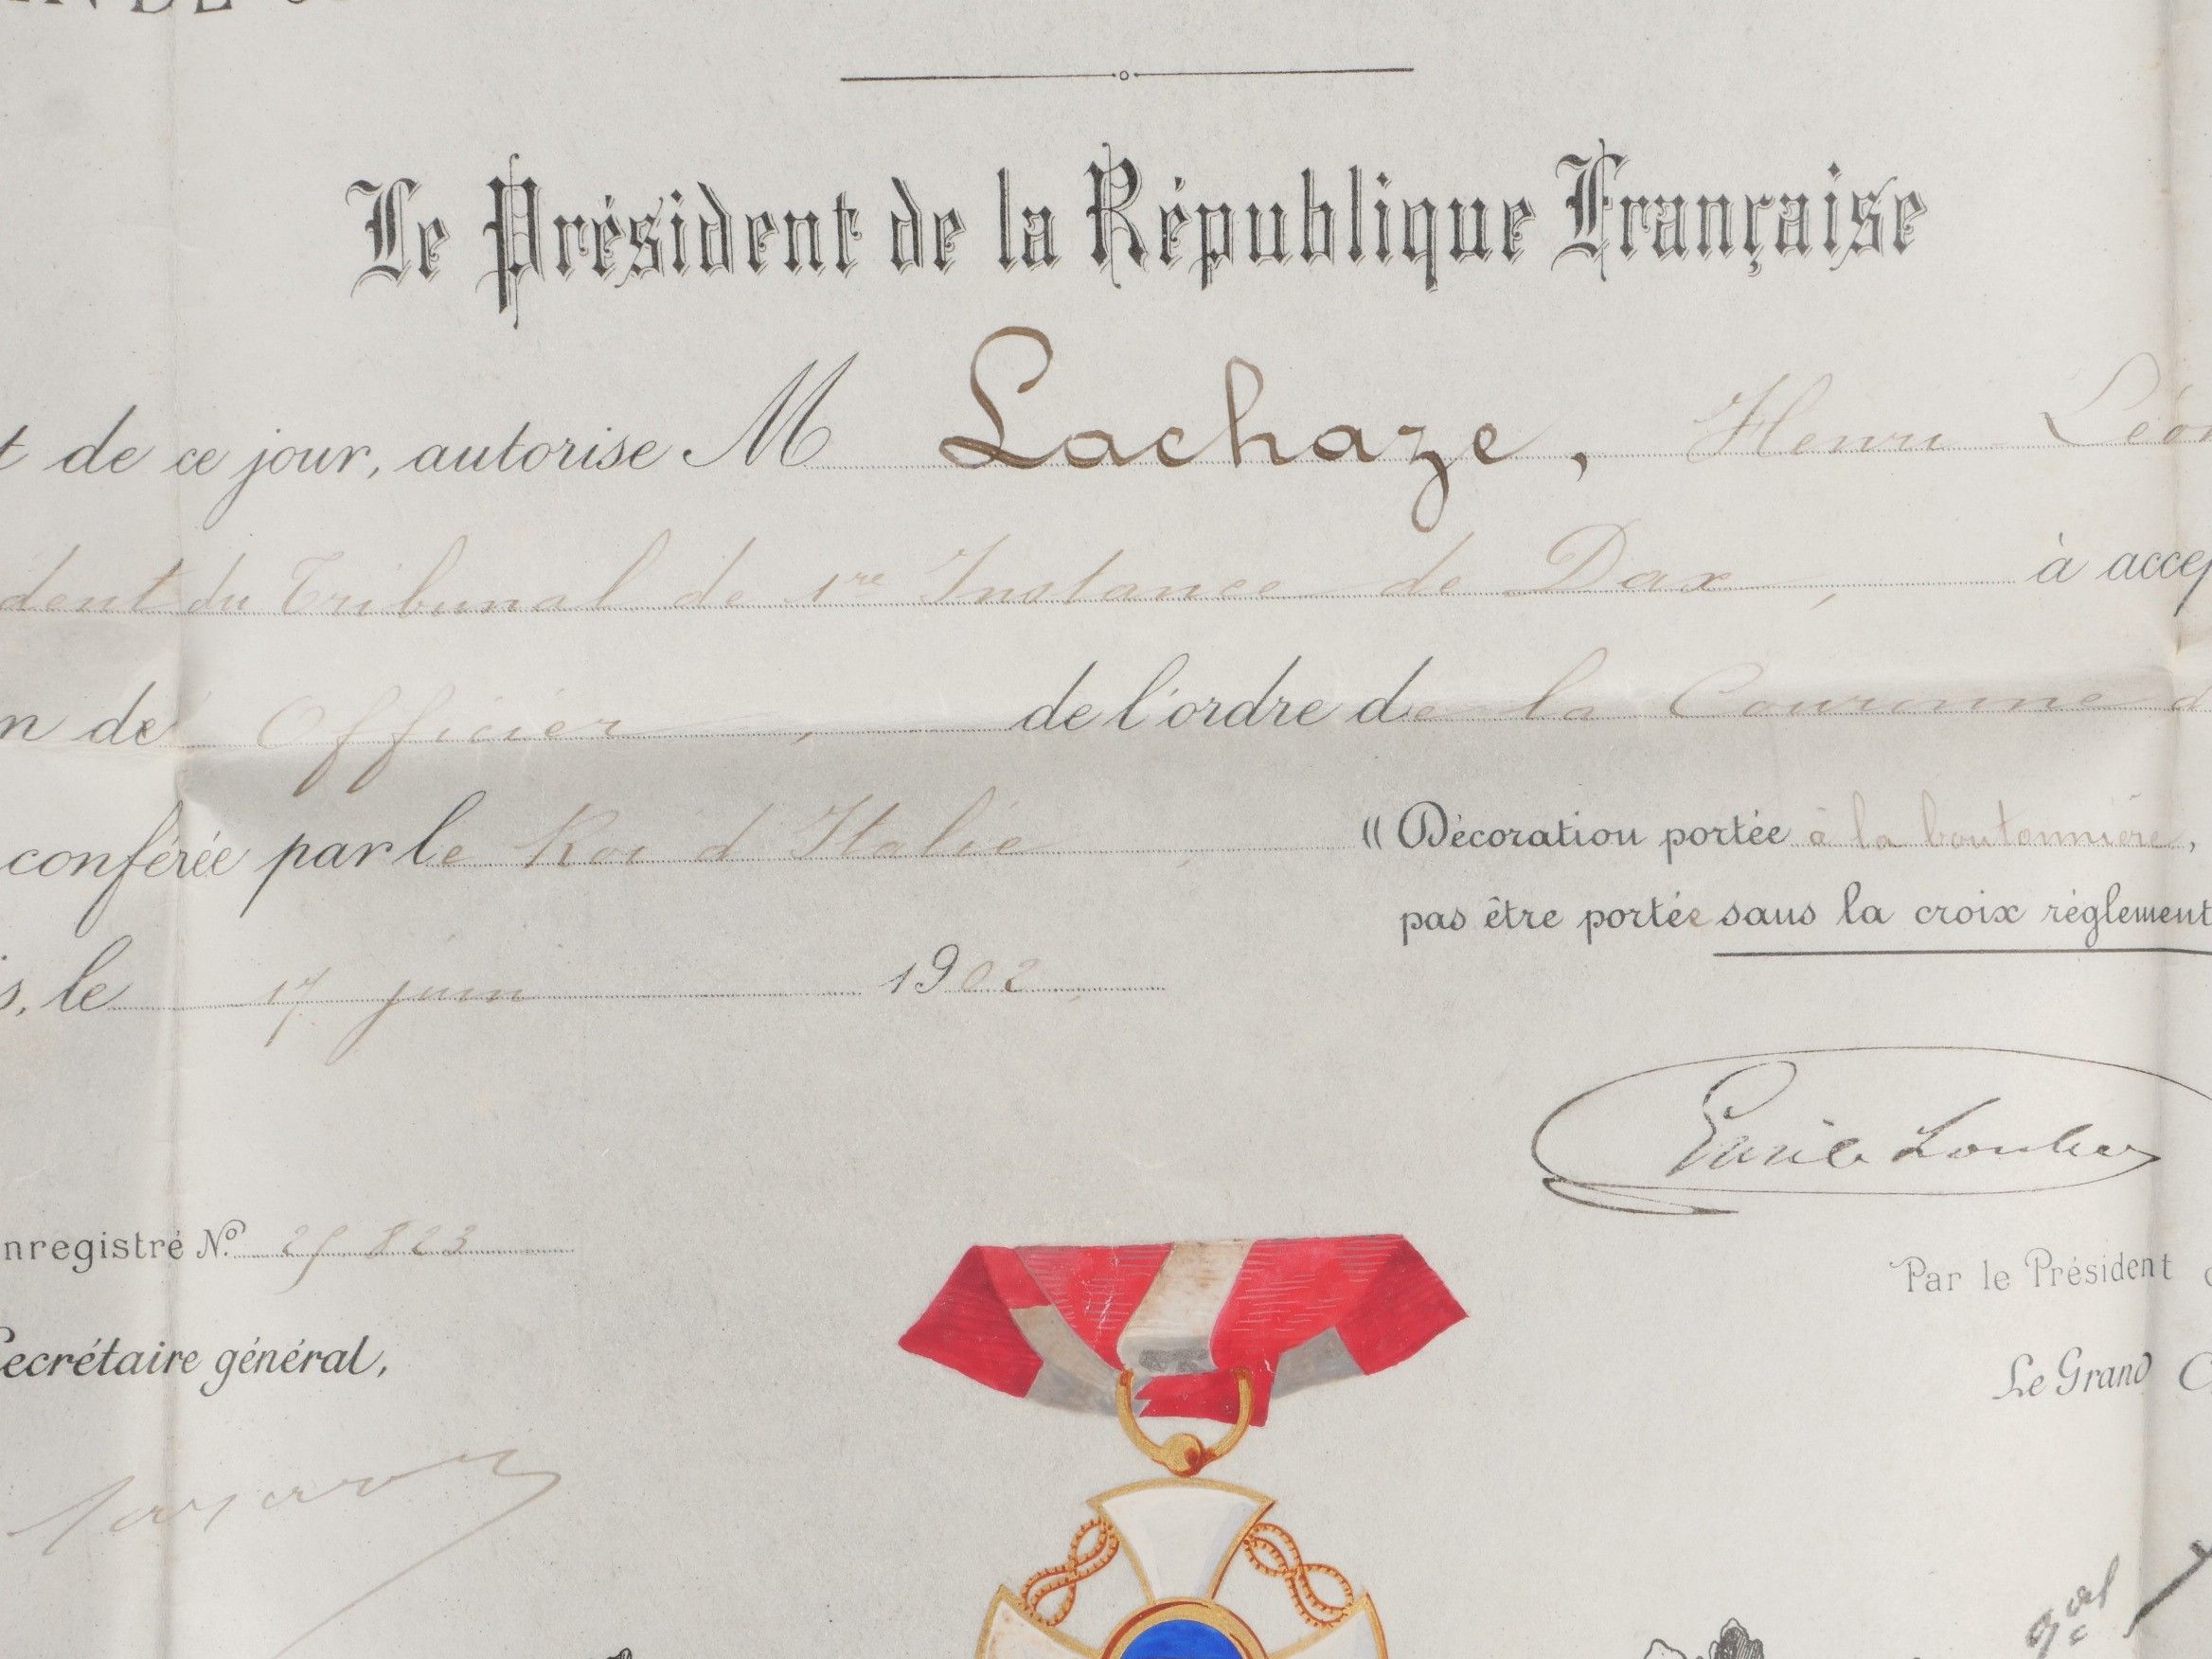 Le Président de la République Française
t de ce jour, autorise M Lachaze, Henri Léon
dent du Tribunal de 1re Instance de Dax, à accep
n de Officier, de l'ordre de la Couronne d
conférée par le Roi d'Italie, (( Décoration portée à la boutonnière,
pas être portée sans la croix réglement
s, le 17 juin 1902,
Emile Loubet
nregistré No 25.823
Par le Président
ecrétaire général,
Le Grand C